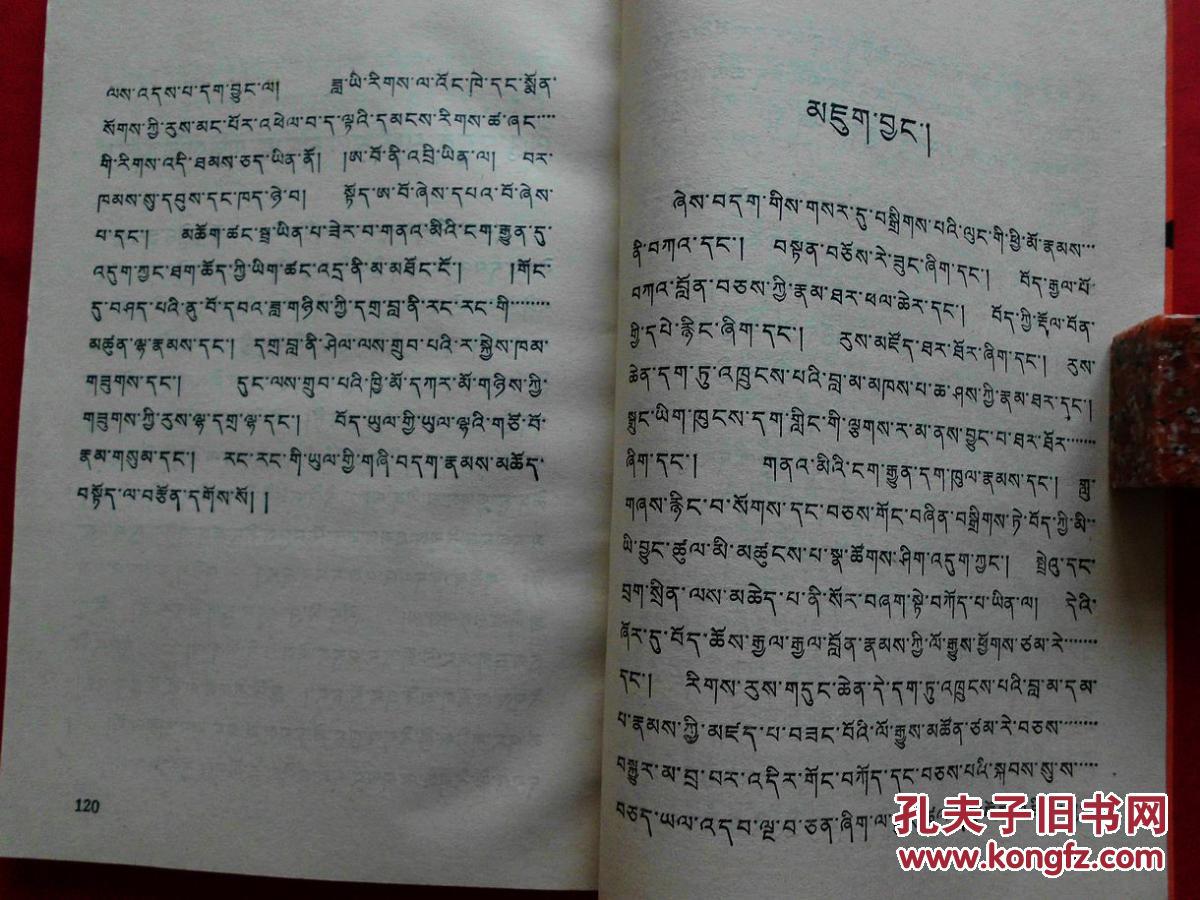 ལས་འདས་པ་དག་བྱུང་ལ། ཟླ་ཡི་རིགས་ལ་འོང་ཁེ་དང་སྨོན་
སོགས་ཀྱི་རུས་མང་པོར་འཕེལ་བ་ད་ལྟའི་དམངས་རིགས་ཚ་ཞང་····
གི་རིགས་འདི་ཐམས་ཅད་ཡིན་ནོ། །ཨ་བོ་ནི་འབྲི་ཡིན་ལ། བར་
ཁམས་སུ་དབུས་དང་ཁད་ཉེ་བ། སྟོད་ཨ་བོ་ཞེས་དཔའ་བོ་ཞེས་
པ་དང་། མཆོག་ཚང་སྦྲ་ཡིན་པ་ཟེར་བ་གནའ་མིའི་ངག་རྒྱུན་དུ་
འདུག་ཀྱང་ཐག་ཆོད་ཀྱི་ཡིག་ཚང་འདྲ་ནི་མ་མཐོང་ངོ་། །གོང་
དུ་བཤད་པའི་ནུ་བོ་དབའ་ཟླ་གཉིས་ཀྱི་དགྲ་བླ་ནི་རང་རང་གི་·······
མཚུན་ལྷ་རྣམས་དང་། དགྲ་བླ་ནི་ཤེལ་ལས་གྲུབ་པའི་ར་སྐྱེས་ཁམ་
གཟུགས་དང་། དུང་ལས་གྲུབ་པའི་ཁྱི་མོ་དཀར་མོ་གཉིས་ཀྱི་
གཟུགས་ཀྱི་རུས་ལྷ་དགྲ་ལྷ་དང་། བོད་ཡུལ་གྱི་ཡུལ་ལྷའི་གཙོ་བོ་
རྣམ་གསུམ་དང་། རང་རང་གི་ཡུལ་གྱི་གཞི་བདག་རྣམས་མཆོད་
བསྟོད་ལ་བརྩོན་དགོས་སོ། །
120
མཇུག་བྱང་།
ཞེས་བདག་གིས་གསར་དུ་བསྒྲིགས་པའི་ལུང་གི་ཕྱི་མོ་རྣམས་···
ནི་བཀའ་དང་། བསྟན་བཅོས་རེ་ཟུང་ཞིག་དང་། བོད་རྒྱལ་པོ་
བཀའ་བློན་བཅས་ཀྱི་རྣམ་ཐར་ཕལ་ཆེར་དང་། བོད་ཀྱི་རྡོལ་བོན་
གྱི་དཔེ་རྙིང་ཞིག་དང་། རུས་མཛོད་ཐར་ཐོར་ཞིག་དང་། རུས་
ཆེན་དག་ཏུ་འཁྲུངས་པའི་བླ་མ་མཁས་པ་ཆ་ཤས་ཀྱི་རྣམ་ཐར་དང་།
སྒྲུང་ཡིག་ཁུངས་དག་གླིང་གི་ལྕགས་ར་མ་ནས་བྱུང་བ་ཐར་ཐོར་······
ཞིག་དང་། གནའ་མིའི་ངག་རྒྱུན་དག་ཁུལ་རྣམས་དང་། གླུ་
གཞས་རྙིང་བ་སོགས་དང་བཅས་གོང་བཞིན་བསྒྲིགས་ཏེ་བོད་ཀྱི་མི་··
ཡི་བྱུང་ཚུལ་མི་མཚུངས་པ་སྣ་ཚོགས་ཤིག་འདུག་ཀྱང་། སྤྲེའུ་དང་
བྲག་སྲིན་ལས་མཆེད་པ་ནི་སོར་བཞག་སྟེ་བཀོད་པ་ཡིན་ལ། དེའི་
ཞོར་དུ་བོད་ཆོས་རྒྱལ་རྒྱལ་བློན་རྣམས་ཀྱི་ལོ་རྒྱུས་ཕྱོགས་ཙམ་རེ་······
དང་། རིགས་རུས་གདུང་ཆེན་དེ་དག་ཏུ་འཁྲུངས་པའི་བླ་མ་དམ་
པ་རྣམས་ཀྱི་མཛད་པ་བཟང་པོའི་ལོ་རྒྱུས་མཚོན་ཙམ་རེ་བཅས་······
བསྐྱུར་མ་བྲ་བར་འདིར་གོང་བཀོད་དང་བཅས་པའི་སྐབས་སུ་ས་····
བཅད་ཡལ་འདབ་ལྔ་བ་ཅན་ཞིག་ལ་
孔夫子旧书网
www.kongfz.com